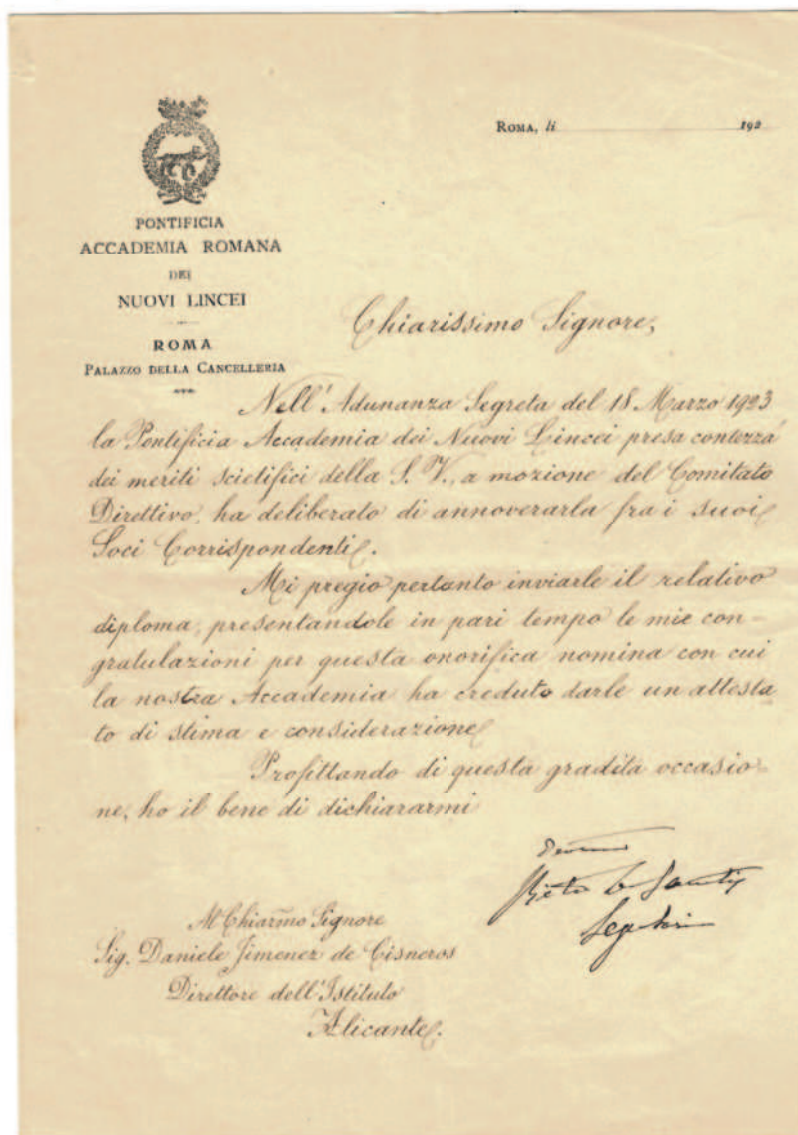 ROMA, li 192
PONTIFICIA
ACCADEMIA ROMANA
DEI
NUOVI LINCEI
ROMA
PALAZZO DELLA CANCELLERIA
Chiarissimo Signore,
Nell'Adunanza Segreta del 18 Marzo 1923
la Pontificia Accademia dei Nuovi Lincei presa contezza
dei meriti scietifici della S. V., a mozione del Comitato
Direttivo, ha deliberato di annoverarla fra i suoi
Soci Corrispondenti.
Mi pregio pertanto inviarle il relativo
diploma, presentandole in pari tempo le mie con-
gratulazioni per questa onorifica nomina con cui
la nostra Accademia ha creduto darle un attesta
to di stima e considerazione
Profittando di questa gradita occasio-
ne, ho il bene di dichiararmi
Al Chiarmo Signore
Sig. Daniele Jimenez de Cisneros
Direttore dell'Istituto
Alicante.